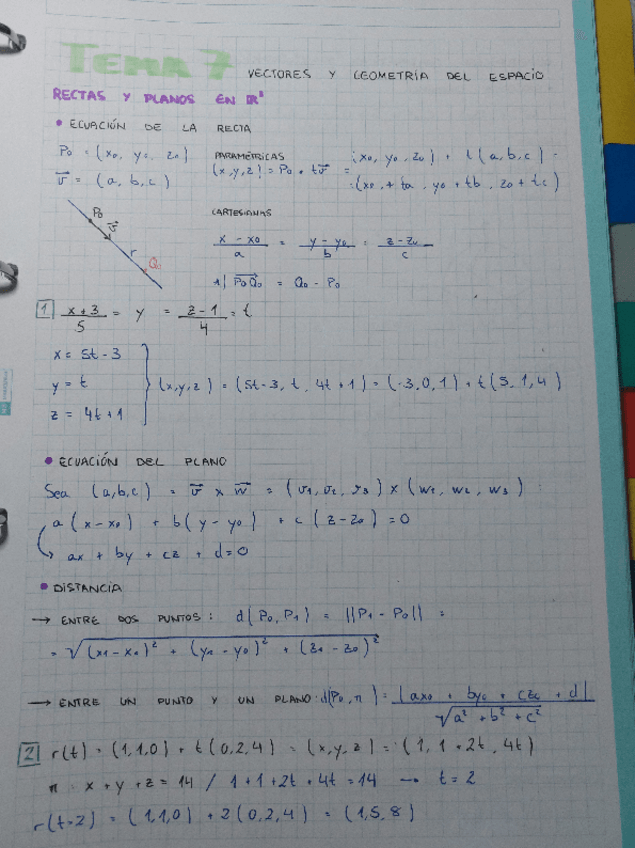 TEMA 7 VECTORES Y GEOMETRÍA DEL ESPACIO
RECTAS Y PLANOS EN ℝ³
• ECUACIÓN DE LA RECTA
P₀ = (x₀, y₀, z₀)
v⃗ = (a, b, c)
PARAMÉTRICAS
(x,y,z) = P₀ + tv⃗ = (x₀, y₀, z₀) + t(a,b,c) =
=(x₀ + ta, y₀ + tb, z₀ + tc)
P₀
v⃗
r
Q₀
CARTESIANAS
(x - x₀)/a = (y - y₀)/b = (z - z₀)/c
P₀Q₀ = Q₀ - P₀
1 (x+3)/5 = y = (z-1)/4 = t
x = 5t - 3
y = t
z = 4t + 1
(x,y,z) = (5t-3, t, 4t+1) = (-3,0,1) + t(5,1,4)
• ECUACIÓN DEL PLANO
Sea (a,b,c) = v⃗ x w⃗ = (v₁, v₂, v₃) x (w₁, w₂, w₃)
a(x-x₀) + b(y-y₀) + c(z-z₀) = 0
ax + by + cz + d = 0
• DISTANCIA
→ ENTRE DOS PUNTOS: d(P₀, P₁) = ||P₁ - P₀|| =
= √((x₁-x₀)² + (y₁-y₀)² + (z₁-z₀)²)
→ ENTRE UN PUNTO Y UN PLANO: d(P₀, π) = |ax₀ + by₀ + cz₀ + d| / √(a² + b² + c²)
2 r(t) = (1,1,0) + t(0,2,4) = (x,y,z) = (1, 1+2t, 4t)
π = x + y + z = 14 / 1+1+2t+4t = 14 → t = 2
r(t=2) = (1,1,0) + 2(0,2,4) = (1,5,8)